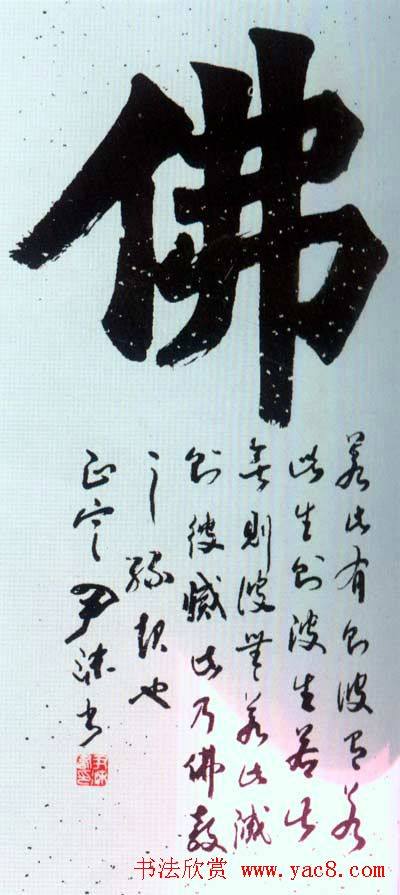 佛
若此有則彼有若
此生則彼生若此
無則彼無若此滅
則彼滅此乃佛教
之緣起也
正定尹書
书法欣赏 www.yac8.com